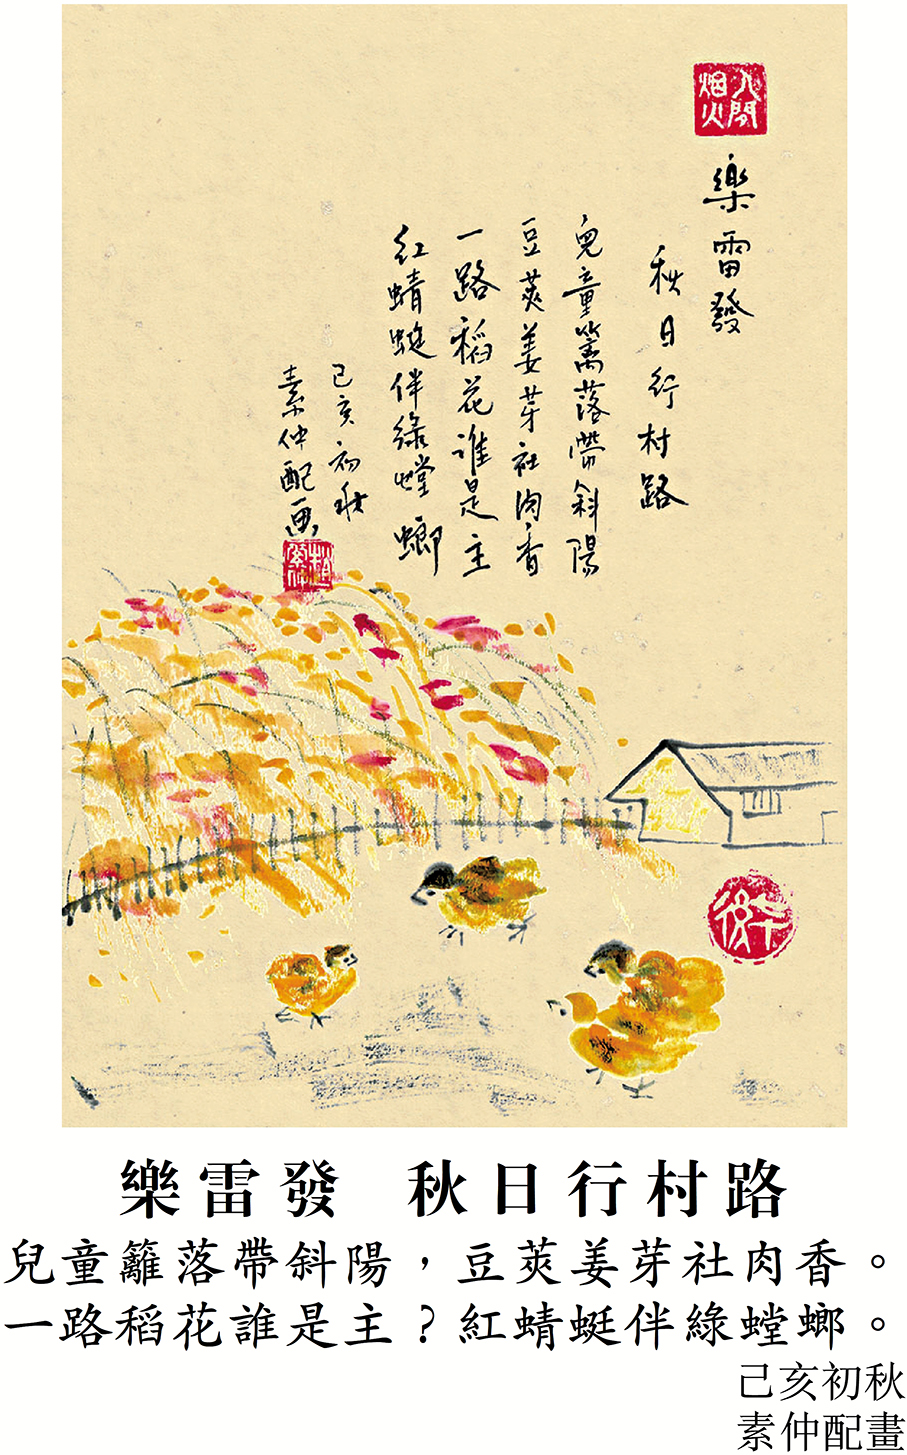 人間烟火
樂雷發
秋日行村路
兒童籬落帶斜陽
豆莢姜芽社肉香
一路稻花誰是主
紅蜻蜓伴綠螳螂
己亥初秋
素仲配画
樂雷發 秋日行村路
兒童籬落帶斜陽，豆莢姜芽社肉香。
一路稻花誰是主？紅蜻蜓伴綠螳螂。
己亥初秋
素仲配畫